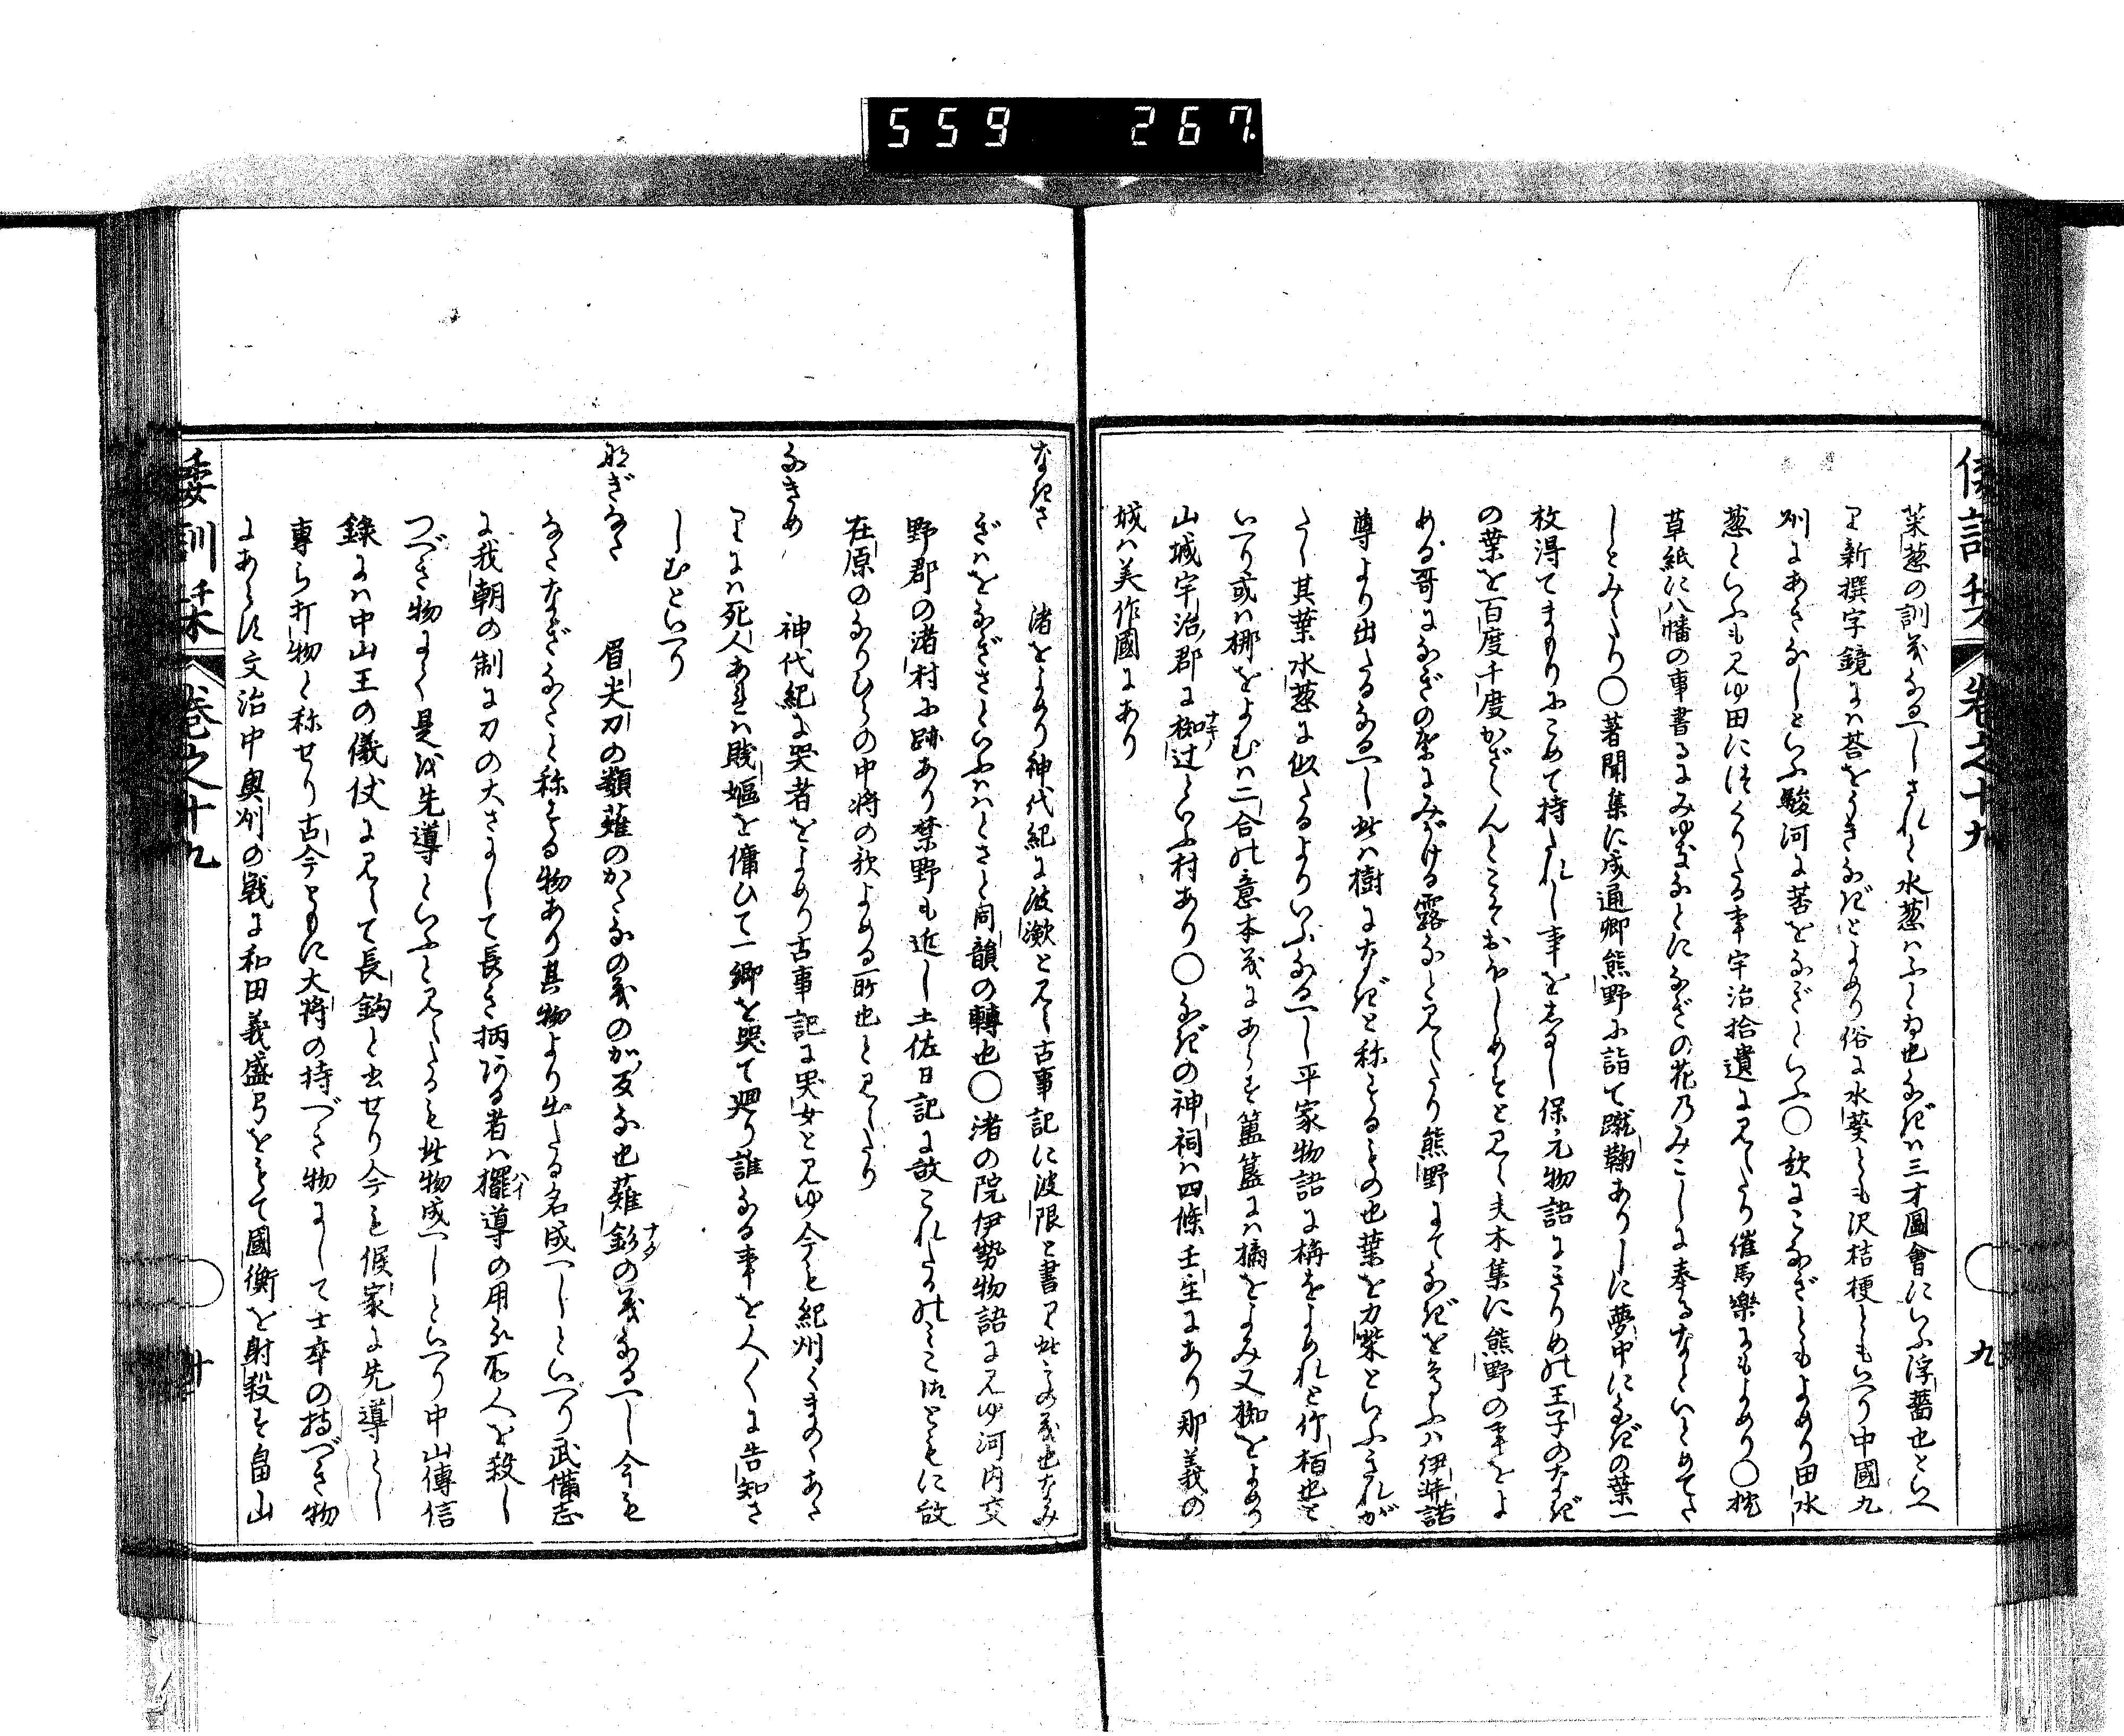 559 267
菜葱の訓義なるべしされと水葱ハふとゐ也なぎハ三才圖會にいふ浮薔也といへ
り新撰字鏡にハ荅をうきなぎとよめり俗に水葵とも沢桔梗ともいへり中國九
刕にあさなしといふ駿河に苦をなぎといふ○歌にこなぎともよめり田水
葱といふも見ゆ田につくりたる事宇治拾遺に見えたり催馬樂にもよめり○枕
草紙に八幡の事書るにみゆきなとになぎの花乃みこしに奉るなといとめてた
しとみえたり○著聞集に成通卿熊野に詣て蹴鞠ありしに夢中になぎの葉一
枚得てまもりにこめて持たれし事をしるし保元物語にきりめの王子のなぎ
の葉を百度千度かざゝんとこそおほしめすと見え夫木集に熊野の事をよ
める哥になぎの葉にみがける露なと見えたり熊野にてなぎを貴ふハ伊弉諾
尊より出たるなるべし此ハ樹になぎと称するもの也葉を力柴といふされが
たし其葉水葱に似たるよりいふなるべし平家物語に梅をよめれと竹栢也と
いへり或ハ梛をよむハ二合の意本義にあらす簠簋にハ橘をよみ又椥をよめり
山城宇治郡に椥辻といふ村あり○なぎの神祠ハ四條壬生にあり那義の
城ハ美作國にあり
なぎさ 渚をよめり神代紀に波瀲と見え古事記に波限と書り此その義也なみ
ぎハをなぎさといふハはとさと同韻の轉也○渚の院伊勢物語に見ゆ河内交
野郡の渚村に跡あり禁野も近し土佐日記に故これたかのみこ御ともに故
在原のなりひらの中将の歌よめる所也と見えたり
なきめ 神代紀に哭者をよめり古事記に哭女と見ゆ今も紀州くまのゝあさ
りにハ死人あれハ賎嫗を傭ひて一郷を哭て廻り誰なる事を人々に告知さ
しむといへり
なぎなた 眉尖刀の類薙のかたなの義のか反な也薙釤の義なるべし今も
なたなぎなたと称する物あり其物より出たる名成べしといへり武備志
に我朝の制に刀の大さにして長き柄ある者ハ擺導の用に不人を殺し
つべき物にて是を先導といふと見えたるも此物成べしといへり中山傳信
録にハ中山王の儀仗に見えて長鈎と出せり今も候家に先導とし
專ら打物と称せり古今ともに大将の持づき物にして士卒の持づき物
にあらす文治中奥刕の戦に和田義盛弓をもて國衡を射殺す畠山
倭訓栞 巻之十九 九
倭訓栞 巻之十九 十